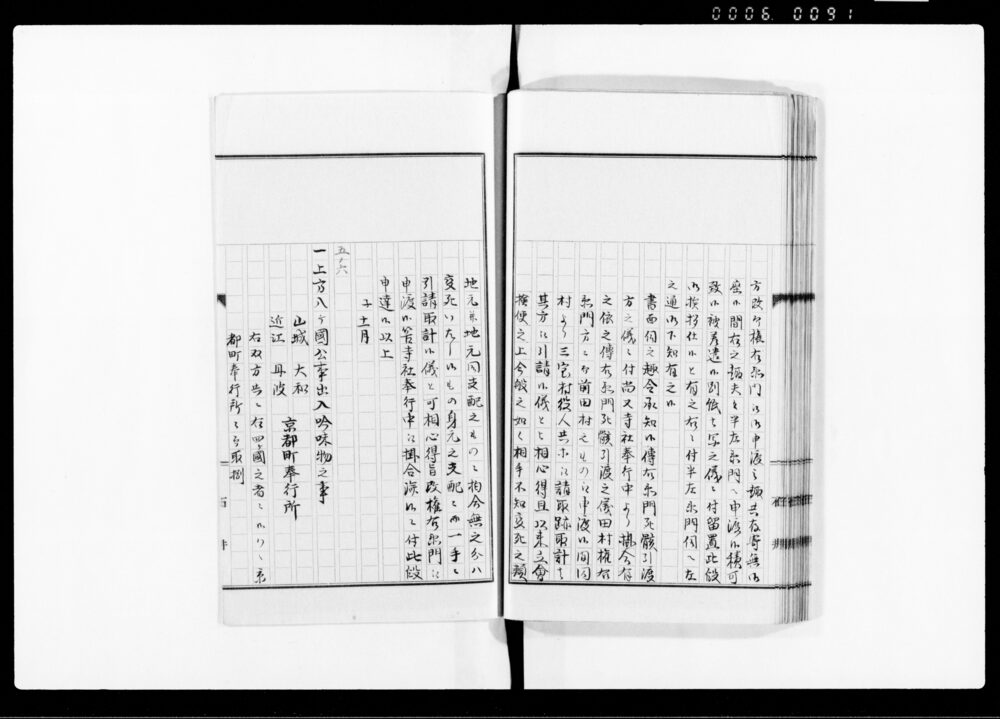 0006 0091
方改今権右衛門江申渡之趣共存寄無御
座候間右之趣夫々半左衛門へ申渡候積可
致候被差遣候別紙は写之儀ニ付留置此段
御挨拶仕候と有之右ニ付半左衛門伺へ左
之通御下知有之候
書面伺之趣令承知候傳右衛門死骸引渡
方之儀ニ付尚又寺社奉行中より掛合有
之依之傳右衛門死骸引渡之儀田村権右
衛門方ニ而前田村之もの江申渡候間同
村より三宅村役人共方江請取跡取計は
其方江引請候儀と相心得且以来立會
検使之上今般之如く相手不知変死之類
地元并地元同支配之ものニ拘合無之分ハ
変死いたし候もの身元之支配ニ而一手ニ
引請取計候儀と可相心得旨改権右衛門江
申渡候筈寺社奉行中江掛合済候ニ付此段
申達候以上
子十一月
五ノ六
一上方八ヶ國公事出入吟味物之事
山城 大和
近江 丹波 京都町奉行所
右双方共ニ在四ヶ國之者ニ候ハヽ京
都町奉行所ニ而取捌